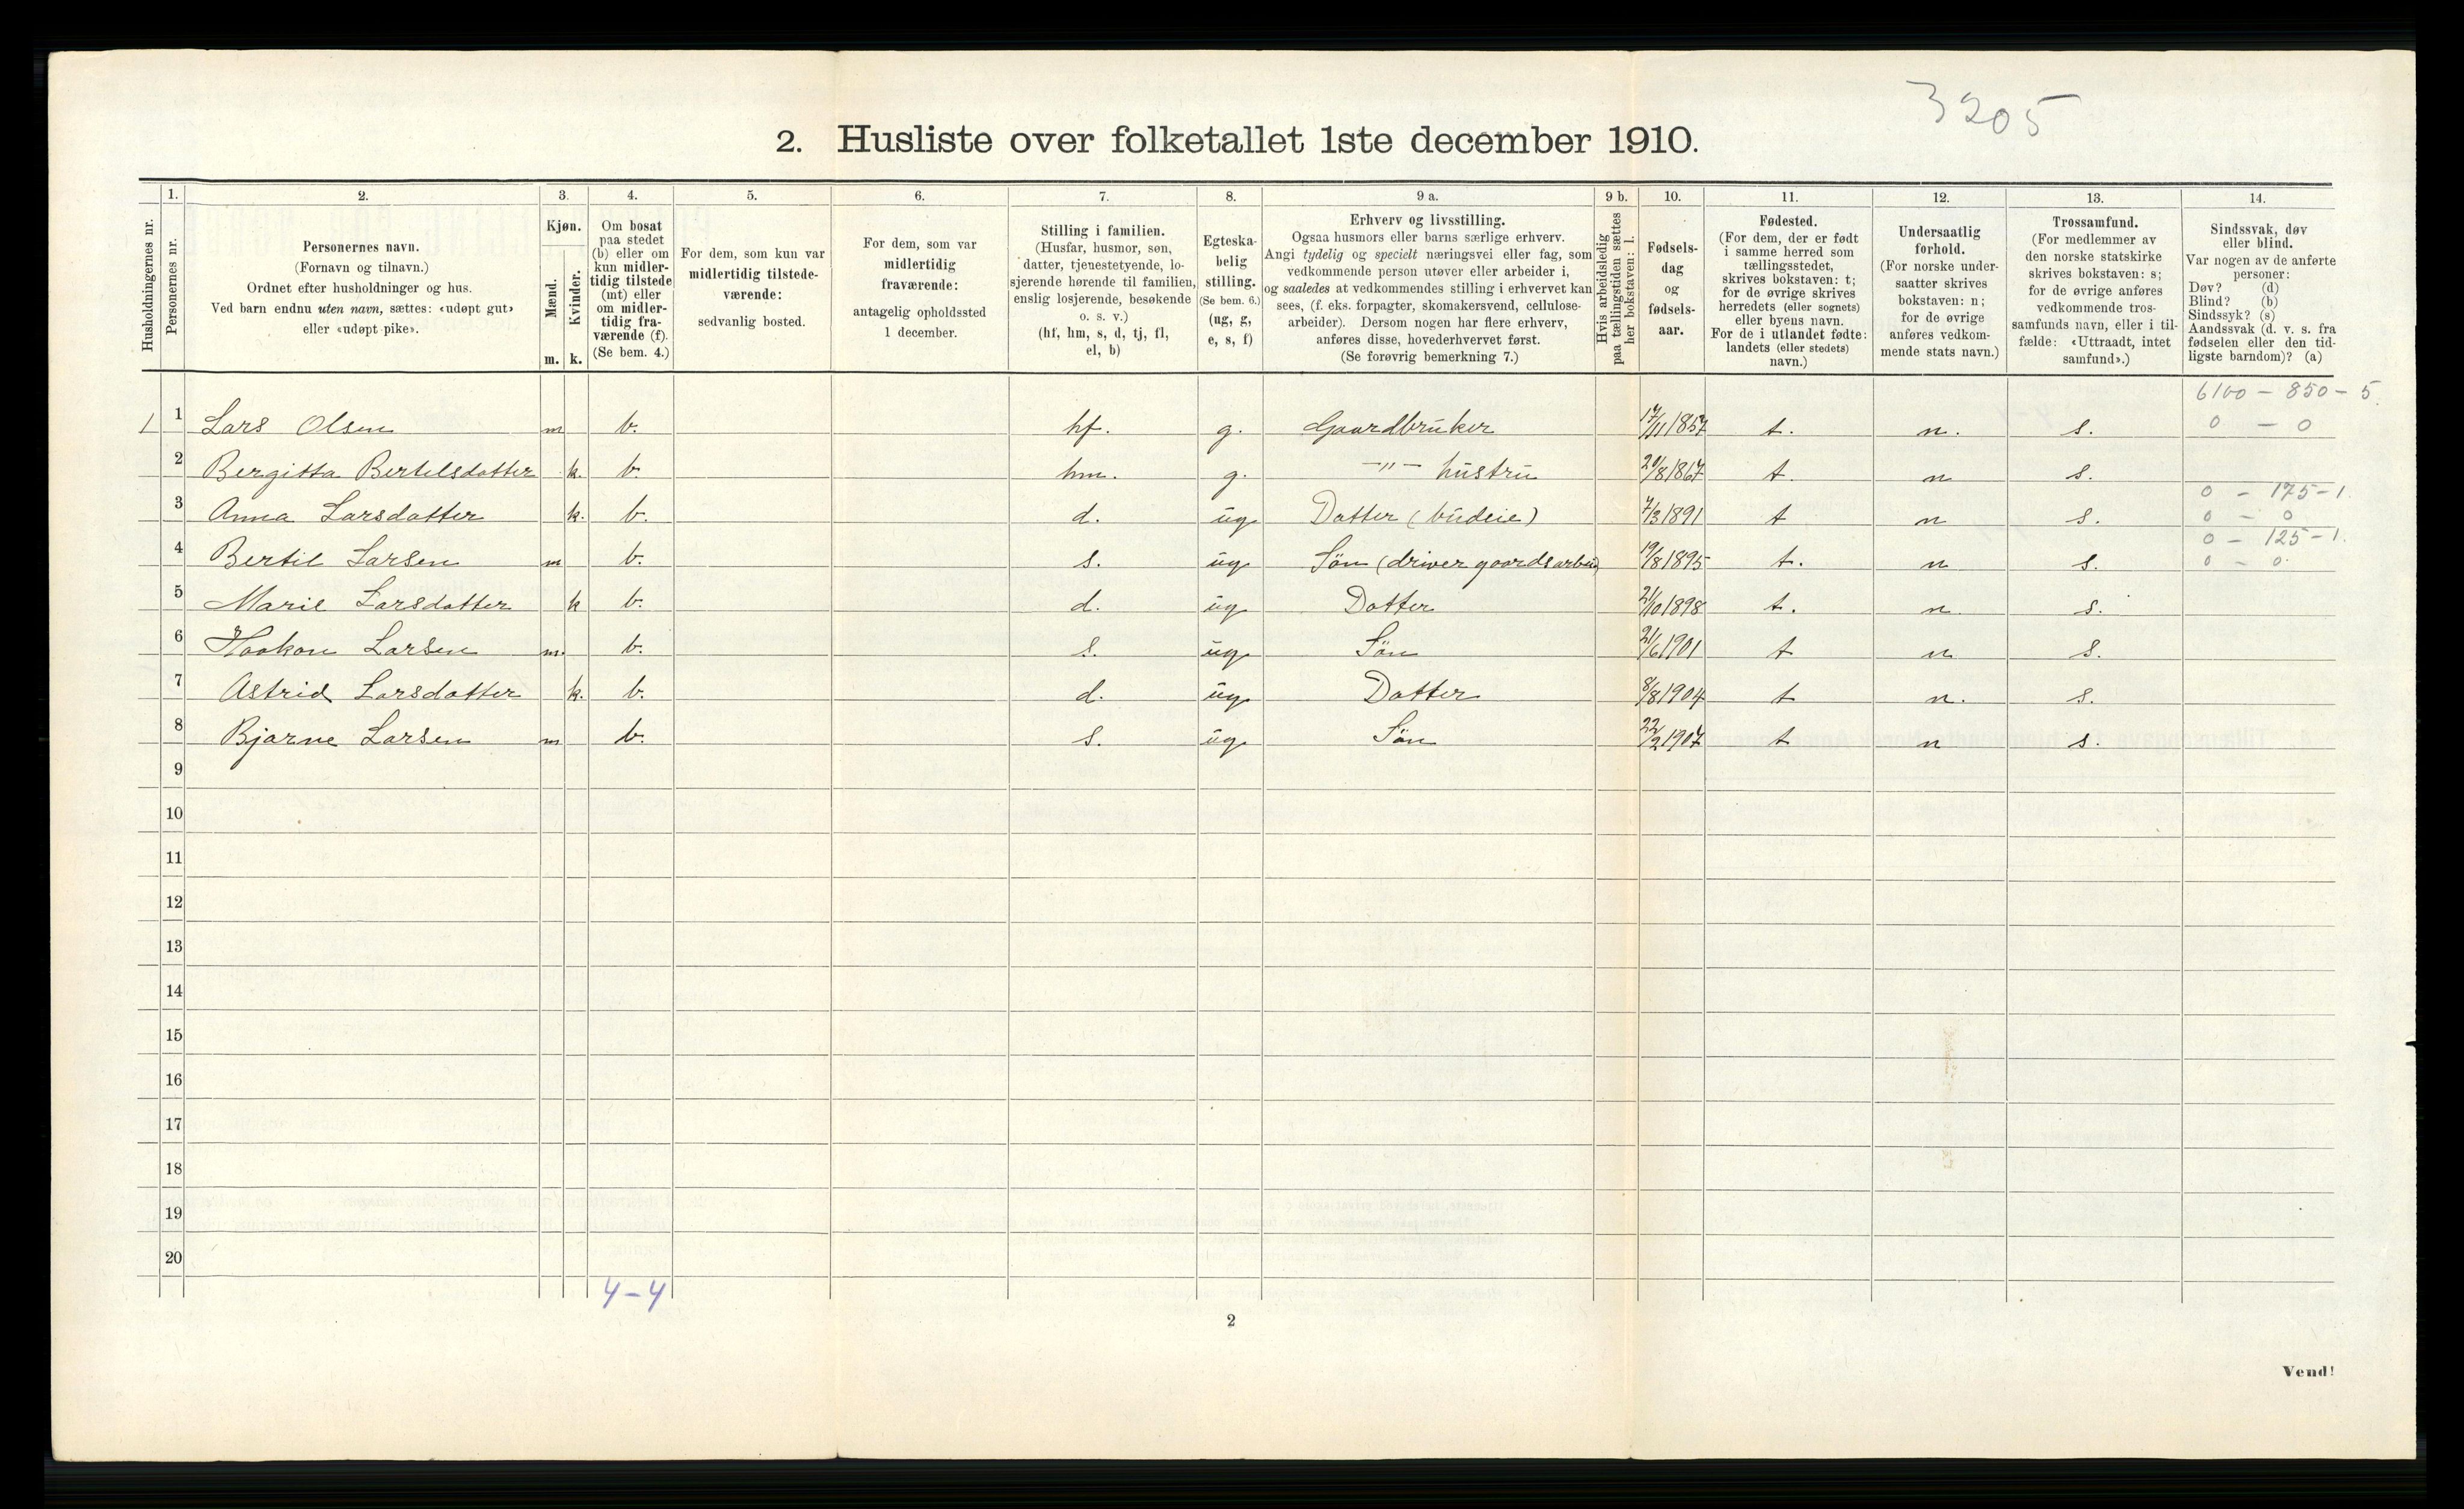 3205
2. Husliste over folketallet 1ste december 1910.
Husholdningernes nr.
1.
Personernes nr.
2.
Personernes navn.
(Fornavn og tilnavn.)
Ordnet efter husholdninger og hus.
Ved barn endnu uten navn, sættes: «udøpt gut»
eller «udøpt pike».
3.
Kjøn.
Mænd.
Kvinder.
m. k.
4.
Om bosat
paa stedet
(b) eller om
kun midler-
tidig tilstede
(mt) eller
om midler-
tidig fra-
værende (f).
(Se bem. 4.)
5.
For dem, som kun var
midlertidig tilstede-
værende:
sedvanlig bosted.
6.
For dem, som var
midlertidig
fraværende:
antagelig opholdssted
1 december.
7.
Stilling i familien.
(Husfar, husmor, søn,
datter, tjenestetyende, lo-
sjerende hørende til familien,
enslig losjerende, besøkende
o. s. v.)
(hf, hm, s, d, tj, fl,
el, b)
8.
Egteska-
belig
stilling.
(Se bem. 6.)
(ug, g,
e, s, f)
9 a.
Erhverv og livsstilling.
Ogsaa husmors eller barns særlige erhverv.
Angi tydelig og specielt næringsvei eller fag, som
vedkommende person utøver eller arbeider i,
og saaledes at vedkommendes stilling i erhvervet kan
sees, (f. eks. forpagter, skomakersvend, cellulose-
arbeider). Dersom nogen har flere erhverv,
anføres disse, hovederhvervet først.
(Se forøvrig bemerkning 7.)
9 b.
Hvis arbeidsledig
paa tællingstiden sættes
her bokstaven: l.
10.
Fødsels-
dag
og
fødsels-
aar.
11.
Fødested.
(For dem, der er født
i samme herred som
tællingsstedet,
skrives bokstaven: t;
for de øvrige skrives
herredets (eller sognets)
eller byens navn.
For de i utlandet fødte:
landets (eller stedets)
navn.)
12.
Undersaatlig
forhold.
(For norske under-
saatter skrives
bokstaven: n;
for de øvrige
anføres vedkom-
mende stats navn.)
13.
Trossamfund.
(For medlemmer av
den norske statskirke
skrives bokstaven: s;
for de øvrige anføres
vedkommende tros-
samfunds navn, eller i til-
fælde: «Uttraadt, intet
samfund».)
14.
Sindssvak, døv
eller blind.
Var nogen av de anførte
personer:
Døv? (d)
Blind? (b)
Sindssyk? (s)
Aandssvak (d. v. s. fra
fødselen eller den tid-
ligste barndom)? (a)
6100 - 850 - 5.
1 1 Lars Olsen m b. hf. g. Gaardbruker 17/11 1857 t. n. s. 0 - 0
2 Bergitta Bertelsdatter k. b. hm. g. -"- hustru 20/8 1867 t. n s.
0 - 175 - 1.
3 Anna Larsdatter k. b. d. ug Datter (budeie) 7/3 1891 t n s. 0 - 0
0 - 125 - 1.
4 Bertil Larsen m b. s. ug Søn (driver gaardsarbeid) 19/8 1895 t. n s. 0 - 0
5 Marie Larsdatter k b. d. ug Datter 21/10 1898 t. n s.
6 Haakon Larsen m. b. s. ug Søn 21/6 1901 t n s.
7 Astrid Larsdatter k. b. d. ug Datter 8/8 1904 t n. s.
8 Bjarne Larsen m b. s. ug Søn 22/2 1907 t n s.
9
10
11
12
13
14
15
16
17
18
19
20
4-4
2
Vend!